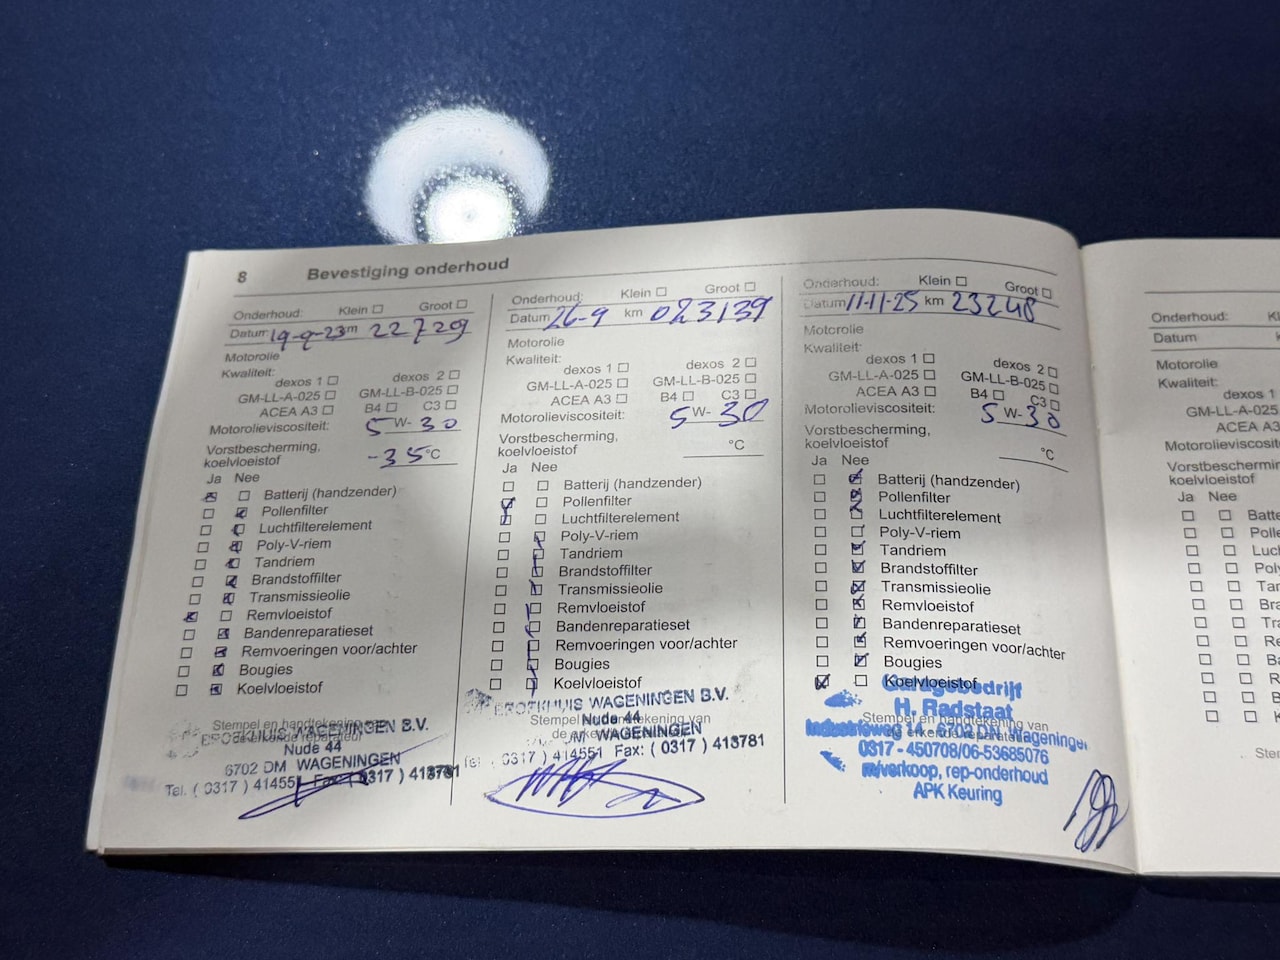 8 Bevestiging onderhoud
Onderhoud: Klein Groot
Datum 19-9-23 km 22729
Motorolie
Kwaliteit:
dexos 1 dexos 2
GM-LL-A-025 GM-LL-B-025
ACEA A3 B4 C3
Motorolieviscositeit: 5 W- 30
Vorstbescherming,
koelvloeistof -35 °C
Ja Nee
Batterij (handzender)
Pollenfilter
Luchtfilterelement
Poly-V-riem
Tandriem
Brandstoffilter
Transmissieolie
Remvloeistof
Bandenreparatieset
Remvoeringen voor/achter
Bougies
Koelvloeistof
Stempel en handtekening van
de erkende reparateur
BROEKHUIS WAGENINGEN B.V.
Nude 44
6702 DM WAGENINGEN
Tel. ( 0317 ) 414551 Fax: ( 0317 ) 413781
Onderhoud: Klein Groot
Datum 26-9 km 023139
Motorolie
Kwaliteit:
dexos 1 dexos 2
GM-LL-A-025 GM-LL-B-025
ACEA A3 B4 C3
Motorolieviscositeit: 5 W- 30
Vorstbescherming,
koelvloeistof °C
Ja Nee
Batterij (handzender)
Pollenfilter
Luchtfilterelement
Poly-V-riem
Tandriem
Brandstoffilter
Transmissieolie
Remvloeistof
Bandenreparatieset
Remvoeringen voor/achter
Bougies
Koelvloeistof
Stempel en handtekening van
de erkende
BROEKHUIS WAGENINGEN B.V.
Nude 44
DM WAGENINGEN
Tel. ( 0317 ) 414551 Fax: ( 0317 ) 413781
Onderhoud: Klein Groot
Datum 11-11-25 km 23248
Motorolie
Kwaliteit:
dexos 1 dexos 2
GM-LL-A-025 GM-LL-B-025
ACEA A3 B4 C3
Motorolieviscositeit: 5 W- 30
Vorstbescherming,
koelvloeistof °C
Ja Nee
Batterij (handzender)
Pollenfilter
Luchtfilterelement
Poly-V-riem
Tandriem
Brandstoffilter
Transmissieolie
Remvloeistof
Bandenreparatieset
Remvoeringen voor/achter
Bougies
Koelvloeistof
Stempel en handtekening van
de erkende reparateur
Garagebedrijf
H. Radstaat
Industrieweg 14 - 6702 DR Wageningen
0317 - 450708/06-53685076
in/verkoop, rep-onderhoud
APK Keuring
Onderhoud: Kl
Datum k
Motorolie
Kwaliteit:
dexos 1
GM-LL-A-025
ACEA A3
Motorolieviscosit
Vorstbeschermin
koelvloeistof
Ja Nee
Batte
Polle
Luc
Pol
Ta
Bra
Tra
Re
Ba
R
B
K
Ste